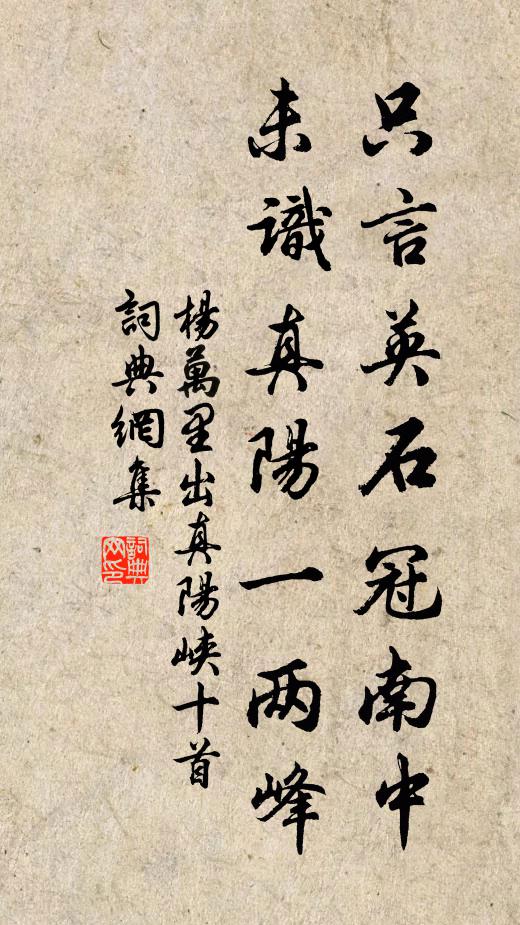 只言英石冠南中
未識真陽一两峰
楊萬里出真陽峡十首
詞典網集
詞典网印